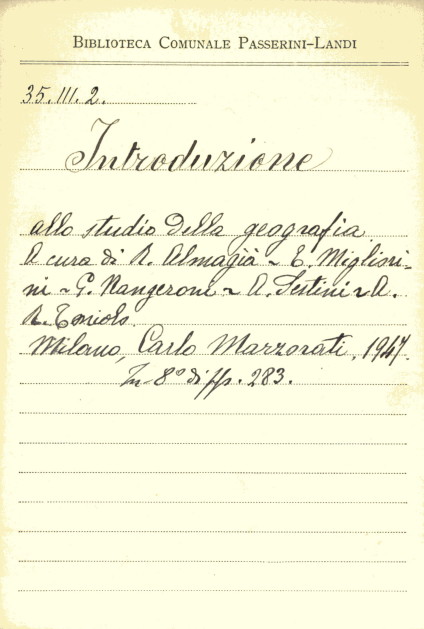 BIBLIOTECA COMUNALE PASSERINI-LANDI
35.III.2.
Introduzione
allo studio della geografia.
A cura di R. Almagià - E. Migliori=
ni - G. Nangeroni - A. Sestini - A.
R. Toniolo.
Milano, Carlo Marzorati, 1947.
In 8° di pp. 283.